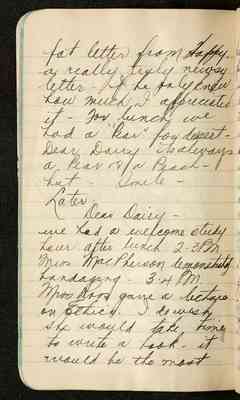 fat letter from Happy -
a really truly newsy
letter - If he only knew
how much I appreciated
it - For lunch we
had a "Pear" for dessert -
Dear Dairy its always
a Pear or a Peach -
but - Smile -
Later
Dear Dairy -
we had a welcome study
hour after lunch 2-3 PM
Miss MacPherson demonstrated
bandaging - 3-4 PM
Miss gave a lecture
on Ethics. I do wish
she would take time
to write a book - it
would be the most